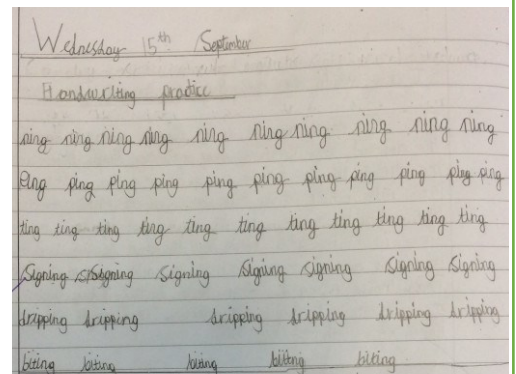 Wednesday 15th September
Handwriting practice
ning ning ning ning ning ning ning ning ning ning
ping ping ping ping ping ping ping ping ping ping ping
ting ting ting ting ting ting ting ting ting ting ting
signing signing signing signing signing signing signing
dripping dripping dripping dripping dripping dripping
biting biting biting biting biting